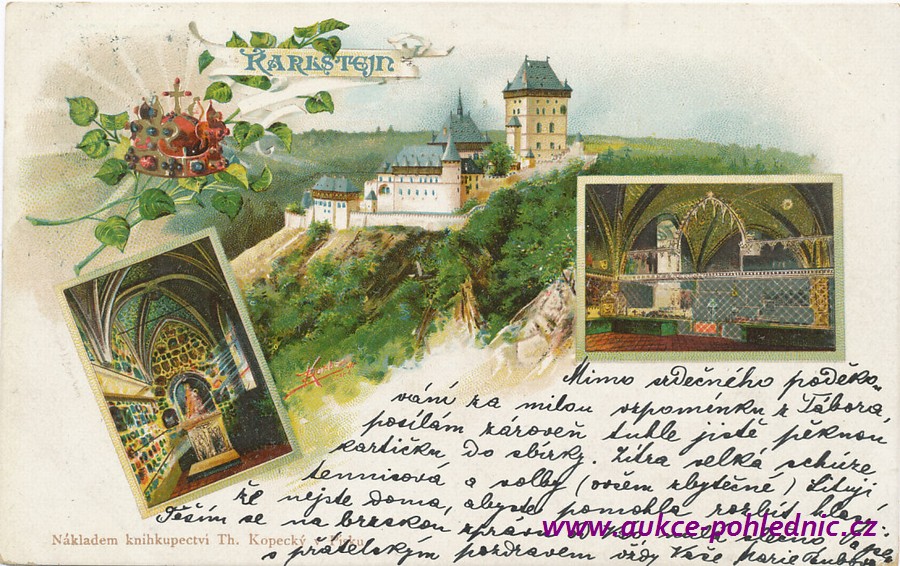 KARLSTEJN
Mimo srdečného poděko-
vání za milou vzpomínku z Tábora
posílám zároveň tuhle jistě pěknou
kartičku do sbírky. Zítra velká schůze
tennisová a volby (ovšem zbytečné) Lituji
že nejste doma, abyste pomohla rozbít
Těším se na brzskou
s přátelským pozdravem vždy Vaše Marie
www.aukce-pohlednic.cz
Nákladem knihkupectví Th. Kopecký v Písku